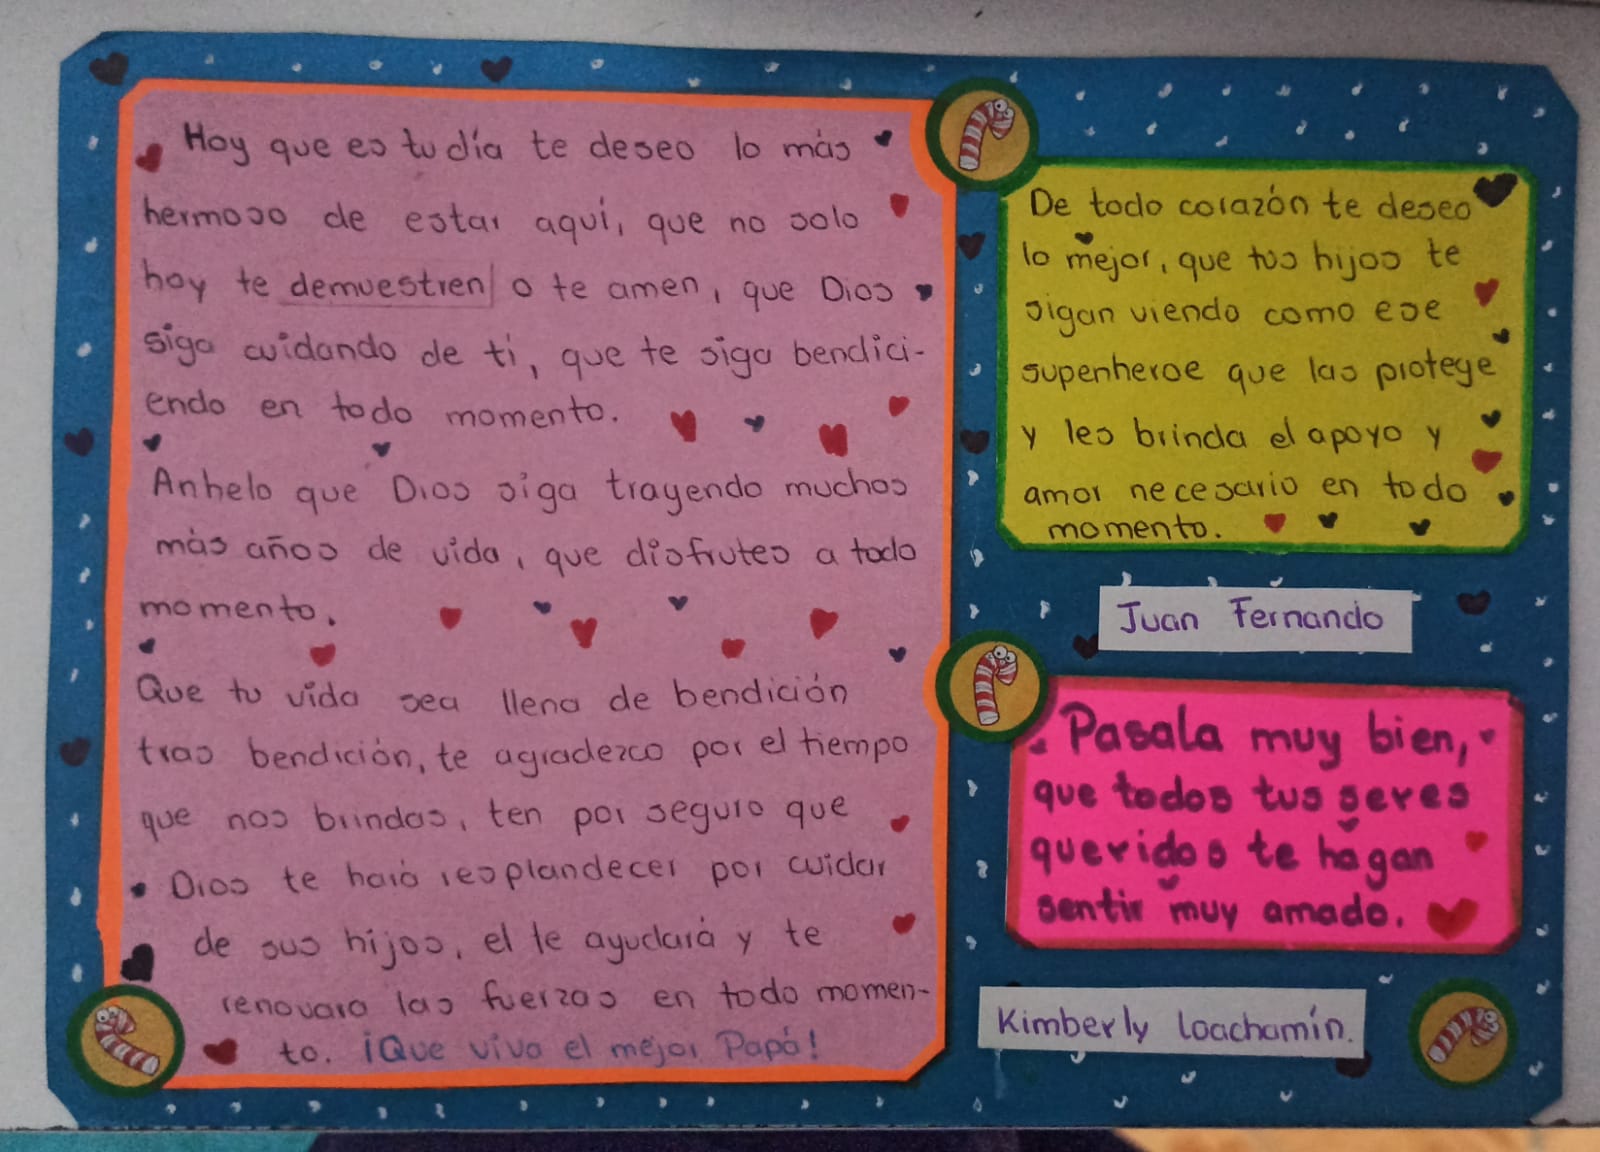 Hoy que es tu día te deseo lo más
hermoso de estar aquí, que no solo
hoy te demuestren o te amen, que Dios
siga cuidando de ti, que te siga bendici-
endo en todo momento.
Anhelo que Dios siga trayendo muchos
más años de vida, que disfrutes a todo
momento.
Que tu vida sea llena de bendición
tras bendición, te agradezco por el tiempo
que nos brindas, ten por seguro que
Dios te hará resplandecer por cuidar
de sus hijos, el te ayudará y te
renovara las fuerzas en todo momen-
to. ¡Que viva el mejor Papá!
De todo corazón te deseo
lo mejor, que tus hijos te
sigan viendo como ese
supenheroe que las protege
y les brinda el apoyo y
amor necesario en todo
momento.
Juan Fernando
Pasala muy bien,
que todos tus seres
queridos te hagan
sentir muy amado.
Kimberly Loachamín.